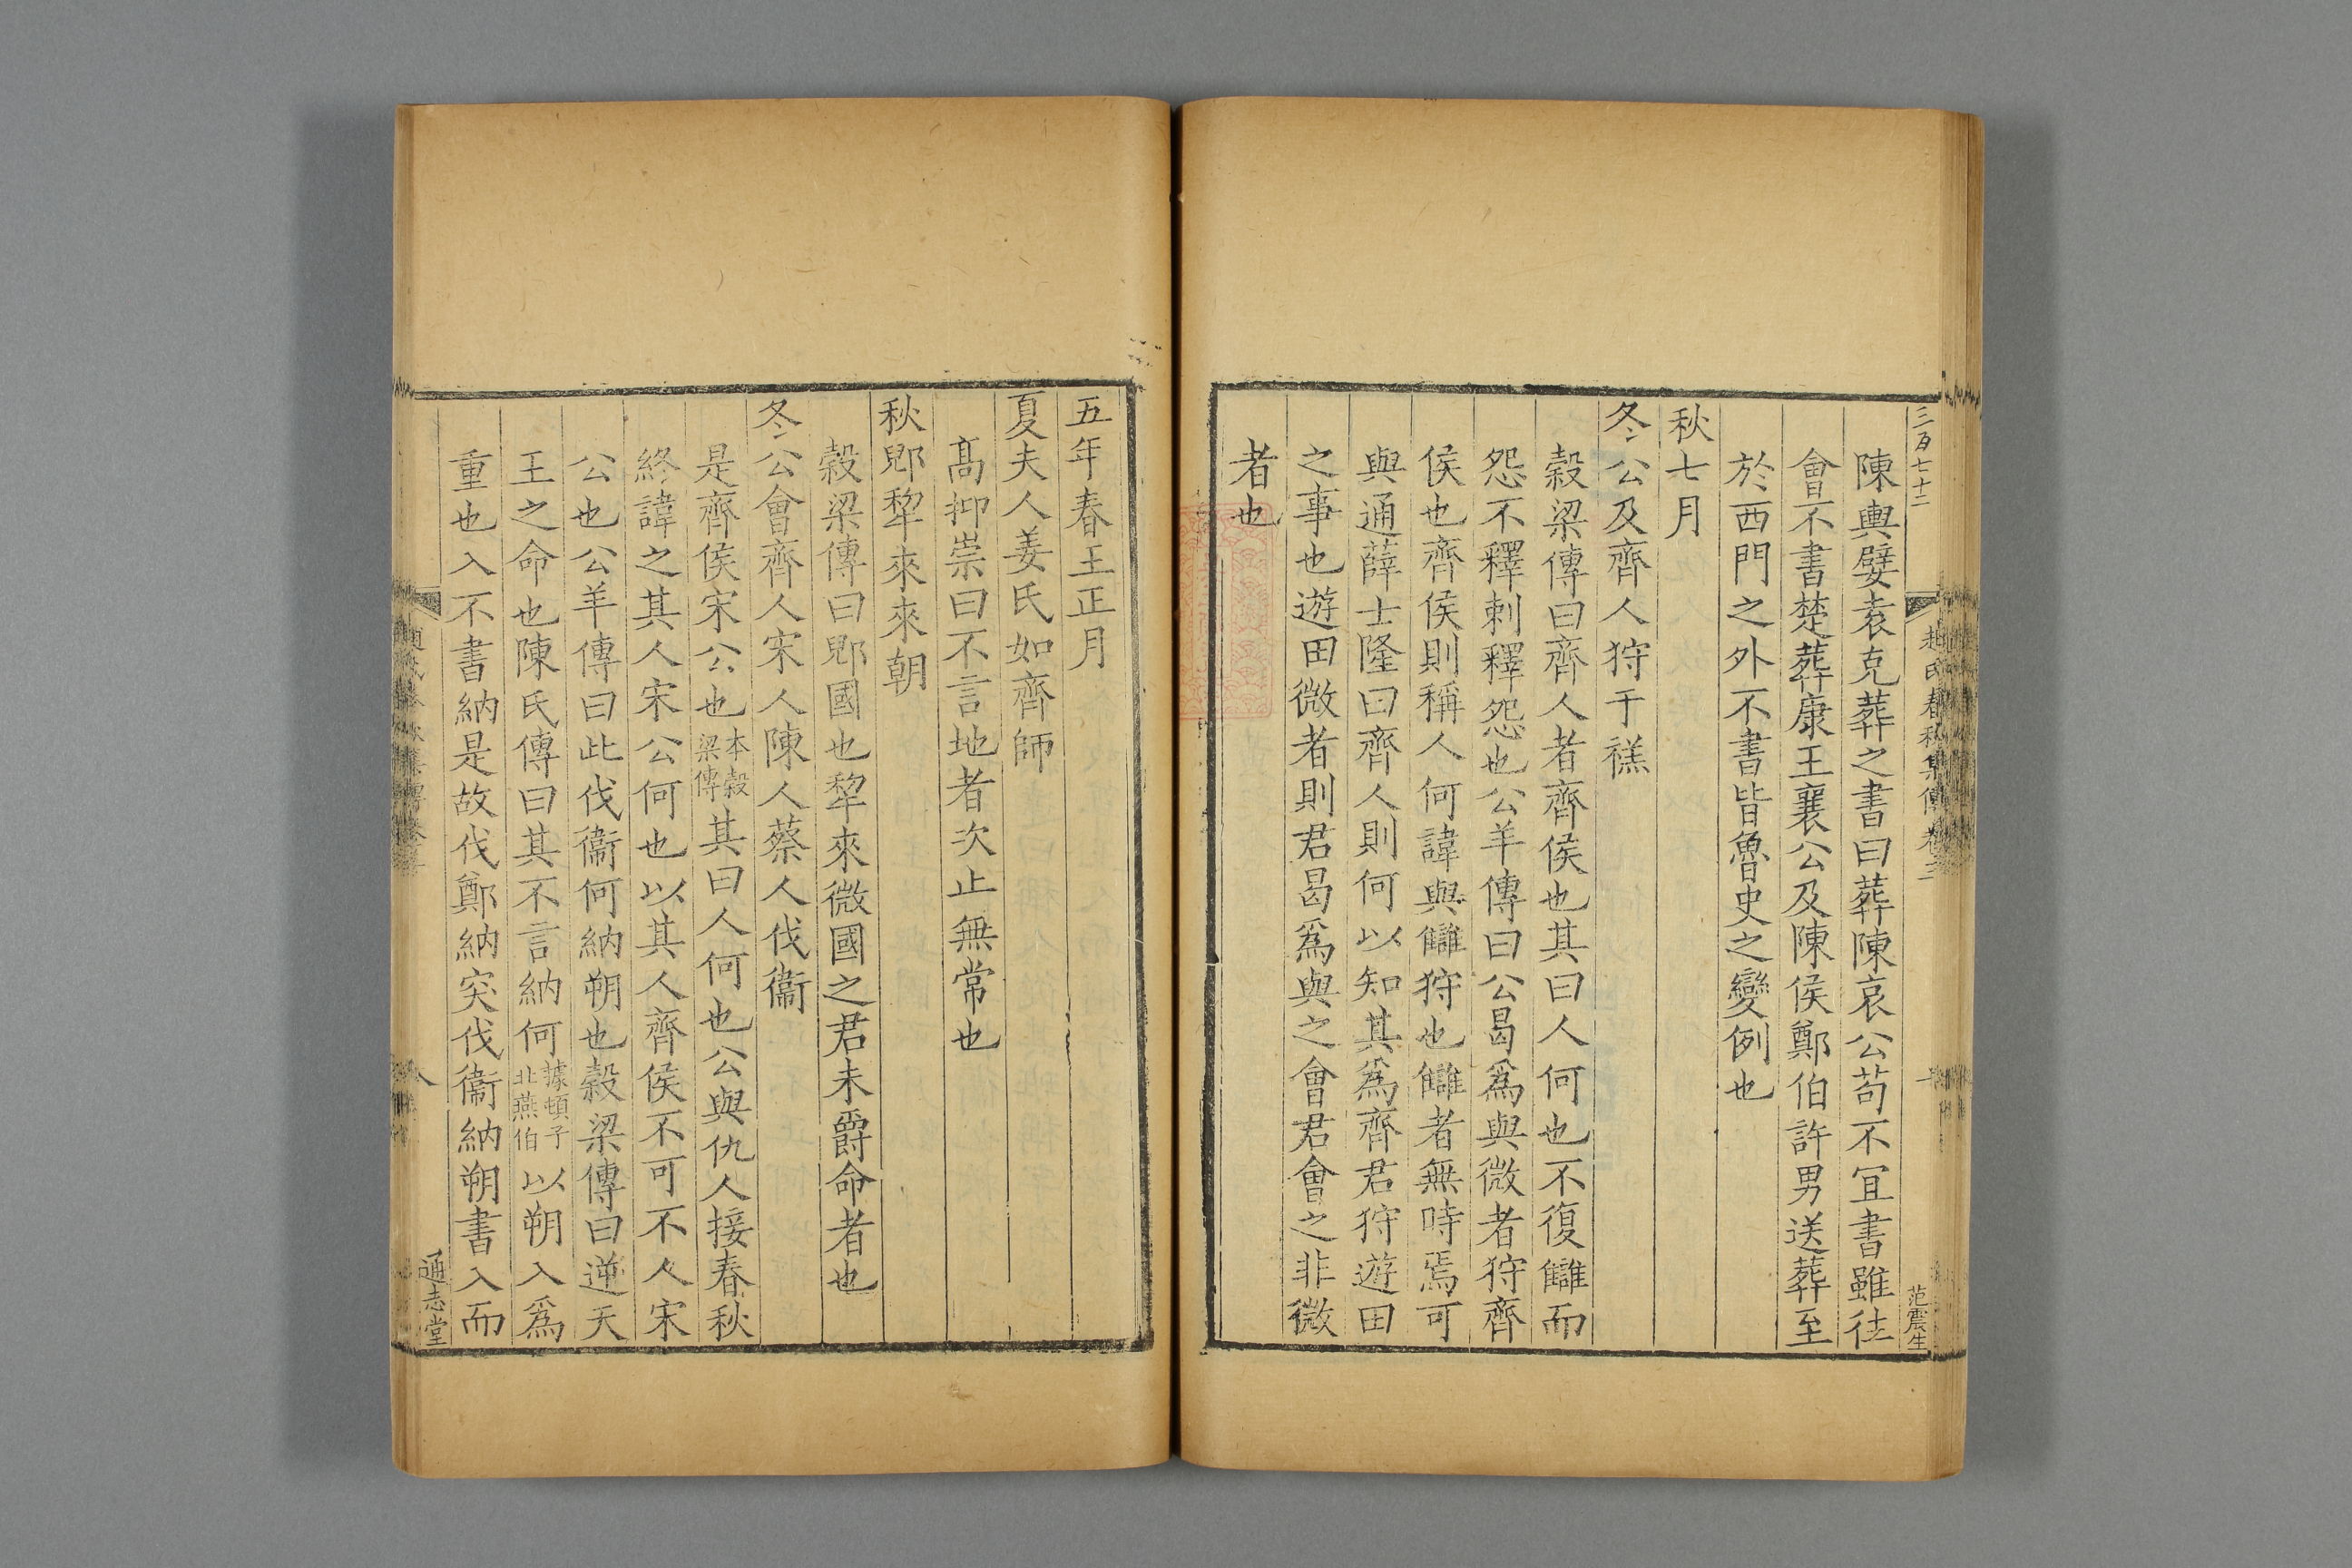 三百七十二
趙氏春秋集傳卷三
范震生
陳輿嬖袁克葬之書曰葬陳哀公苟不冝書雖徃
會不書楚葬康王襄公及陳侯鄭伯許男送葬至
於西門之外不書皆魯史之變例也
秋七月
冬公及齊人狩于禚
穀梁傳曰齊人者齊侯也其曰人何也不復讎而
怨不釋刺釋怨也公羊傳曰公曷爲與微者狩齊
侯也齊侯則稱人何諱與讎狩也讎者無時焉可
與通薛士隆曰齊人則何以知其爲齊君狩遊田
之事也遊田微者則君曷爲與之會君會之非微
者也
五年春王正月
夏夫人姜氏如齊師
髙抑崇曰不言地者次止無常也
秋郳犂來來朝
穀梁傳曰郳國也犂來微國之君未爵命者也
冬公會齊人宋人陳人蔡人伐衞
是齊侯宋公也本穀梁傳其曰人何也公與仇人接春秋
終諱之其人宋公何也以其人齊侯不可不人宋
公也公羊傳曰此伐衞何納朔也穀梁傳曰逆天
王之命也陳氏傳曰其不言納何據頓子北燕伯以朔入爲
重也入不書納是故伐鄭納突伐衞納朔書入而
八
通志堂